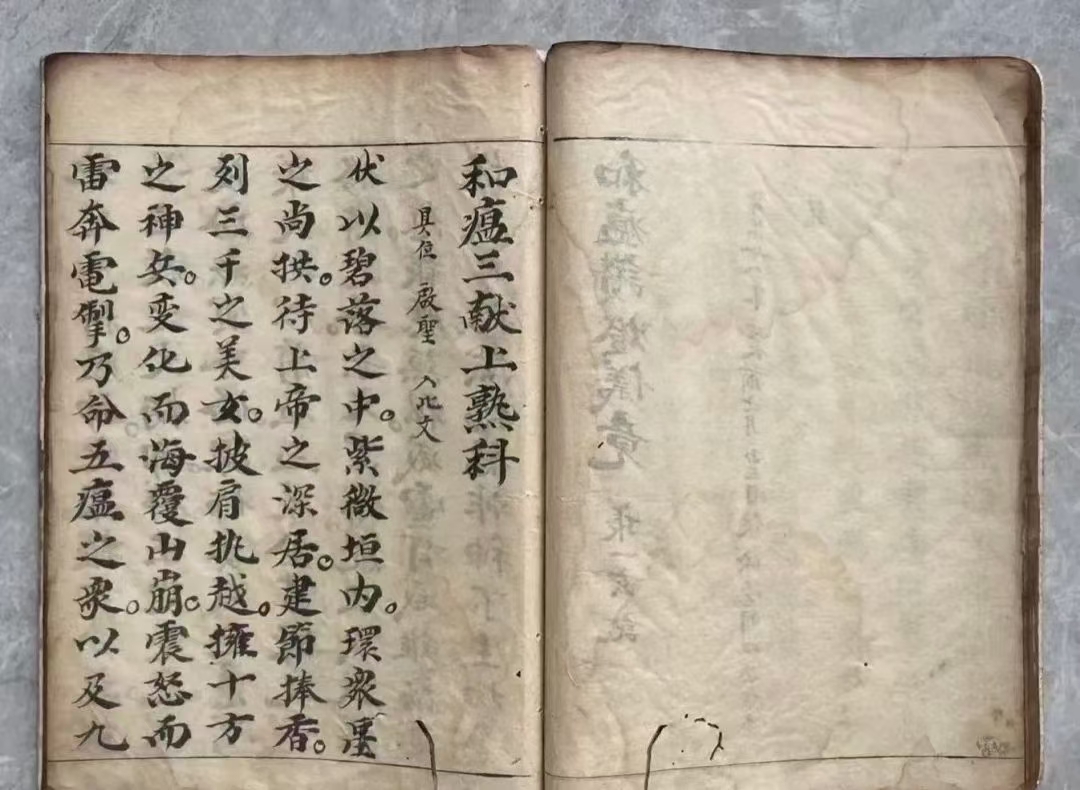 和瘟三献上熟科
具位 啟聖 入北文
伏以碧落之中。紫微垣內。環衆星
之尚拱。待上帝之深居。建節捧香。
列三千之美女。披肩挑越。擁十方
之神兵。变化而海覆山崩。震怒而
雷奔電掣。乃命五瘟之衆。以及九